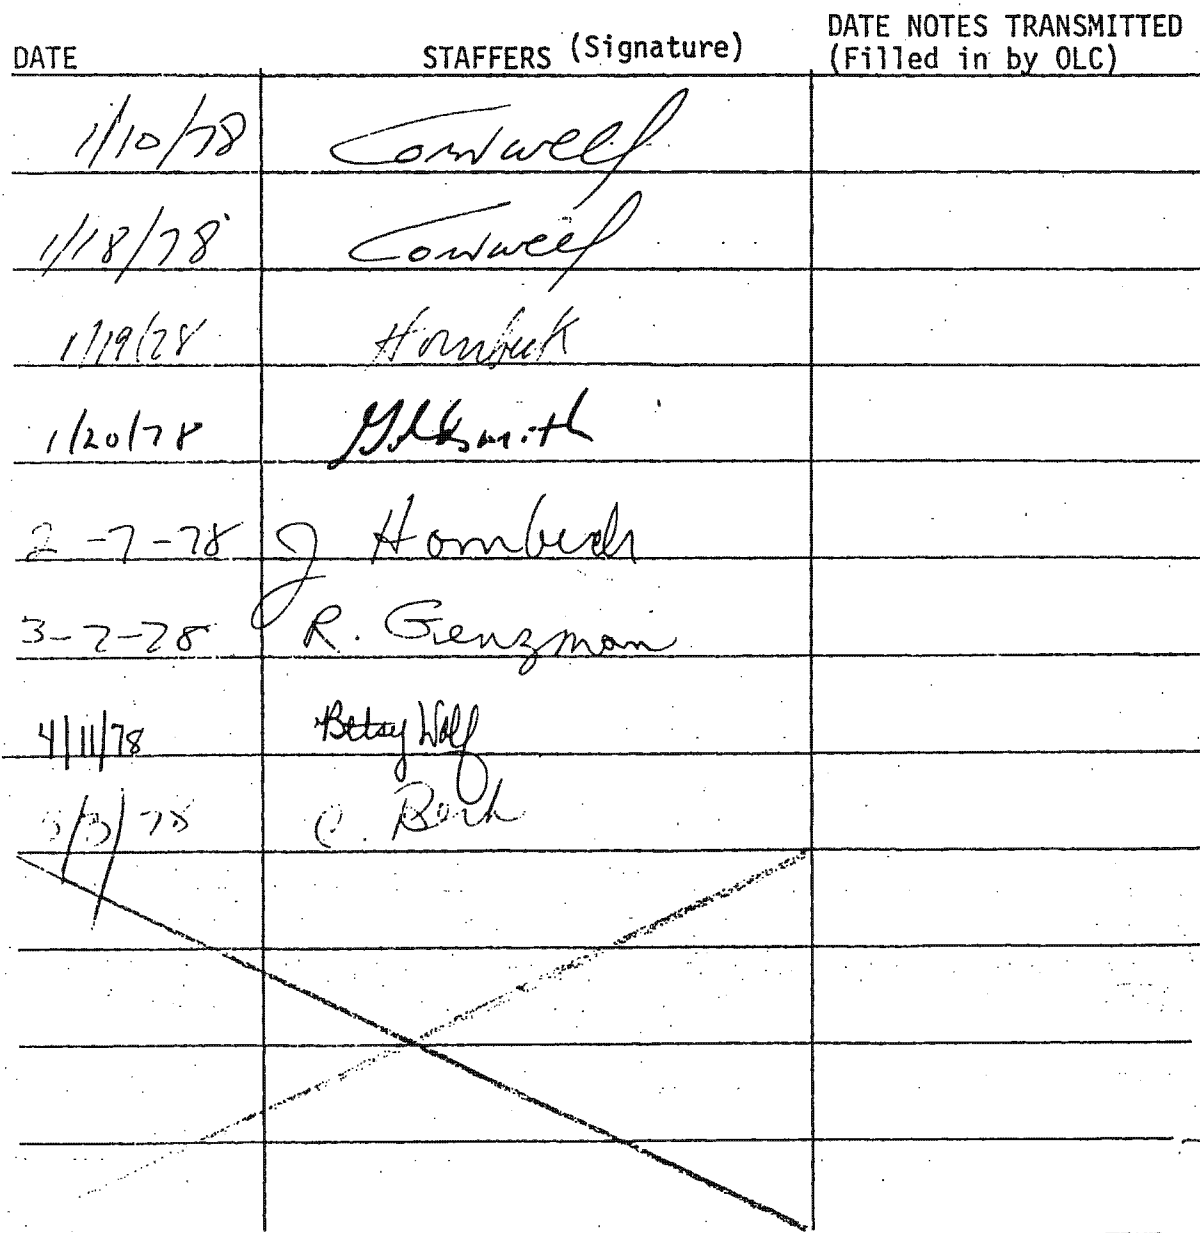 DATE STAFFERS (Signature) DATE NOTES TRANSMITTED
(Filled in by OLC)
1/10/78 Cornwell
1/18/78 Cornwell
1/19/78 Hornbeck
1/20/78 Goldsmith
2-7-78 J Hornbeck
3-7-78 R. Genzman
4/11/78 Betsy Wolf
78 C. Berk